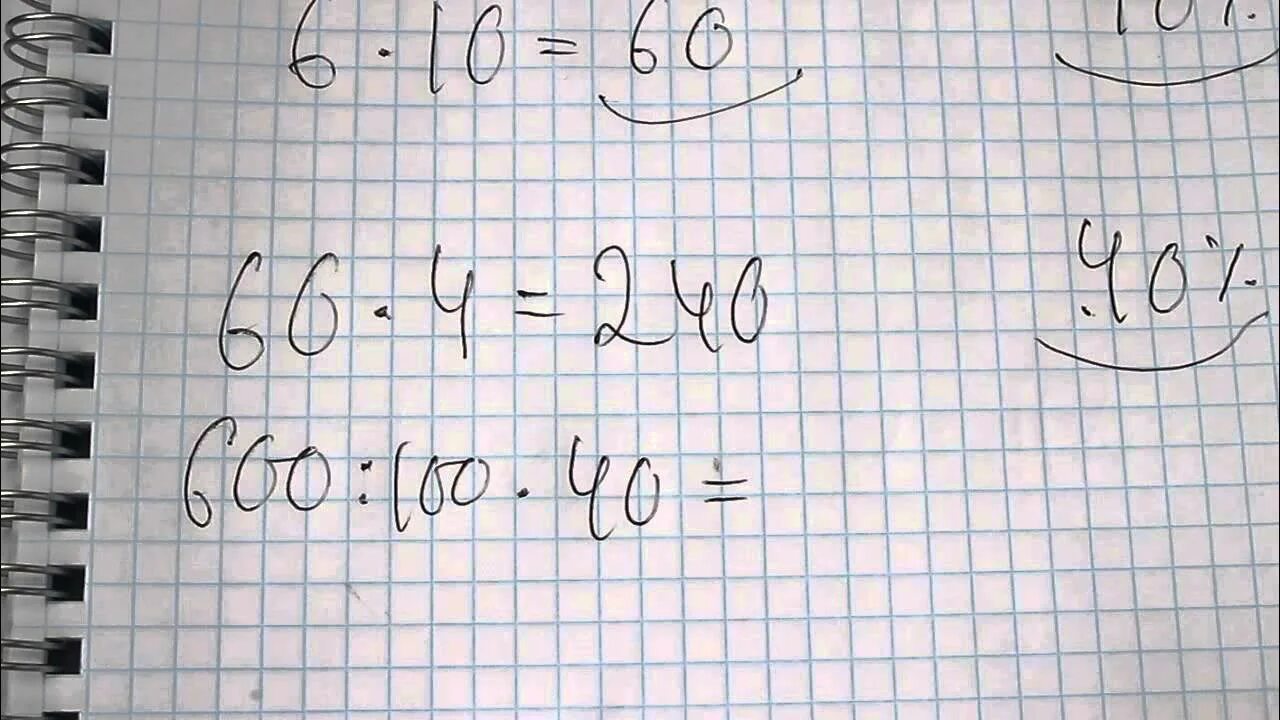 6 · 10 = 60 10%
60 · 4 = 240 40%
600 : 100 · 40 =